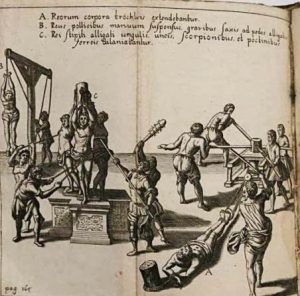 A. Reorum corpora trochleis extendebantur.
B. Reus pollicibus manuum suspensus, gravibus saxis ad pedes alligat
C. Rei stipiti alligati ungulis, uncis, scorpionibus, et pectinibus
ferreis laniabantur.
B
C
A
pag. 165